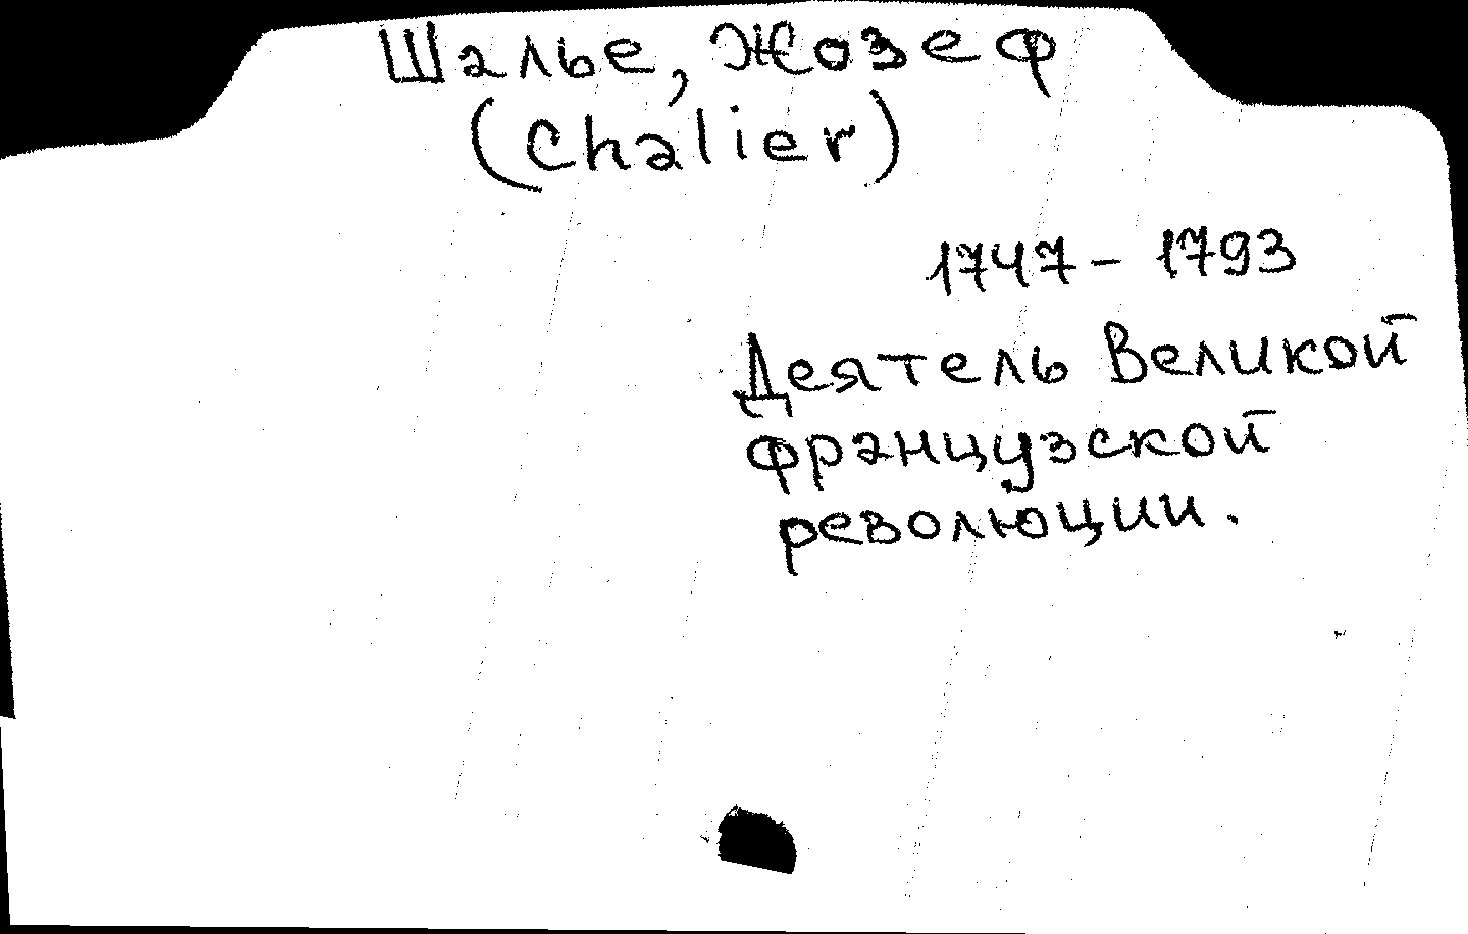 Шалье, Жозеф
(Chalier)
1747 - 1793
Деятель Великой
французской
революции.